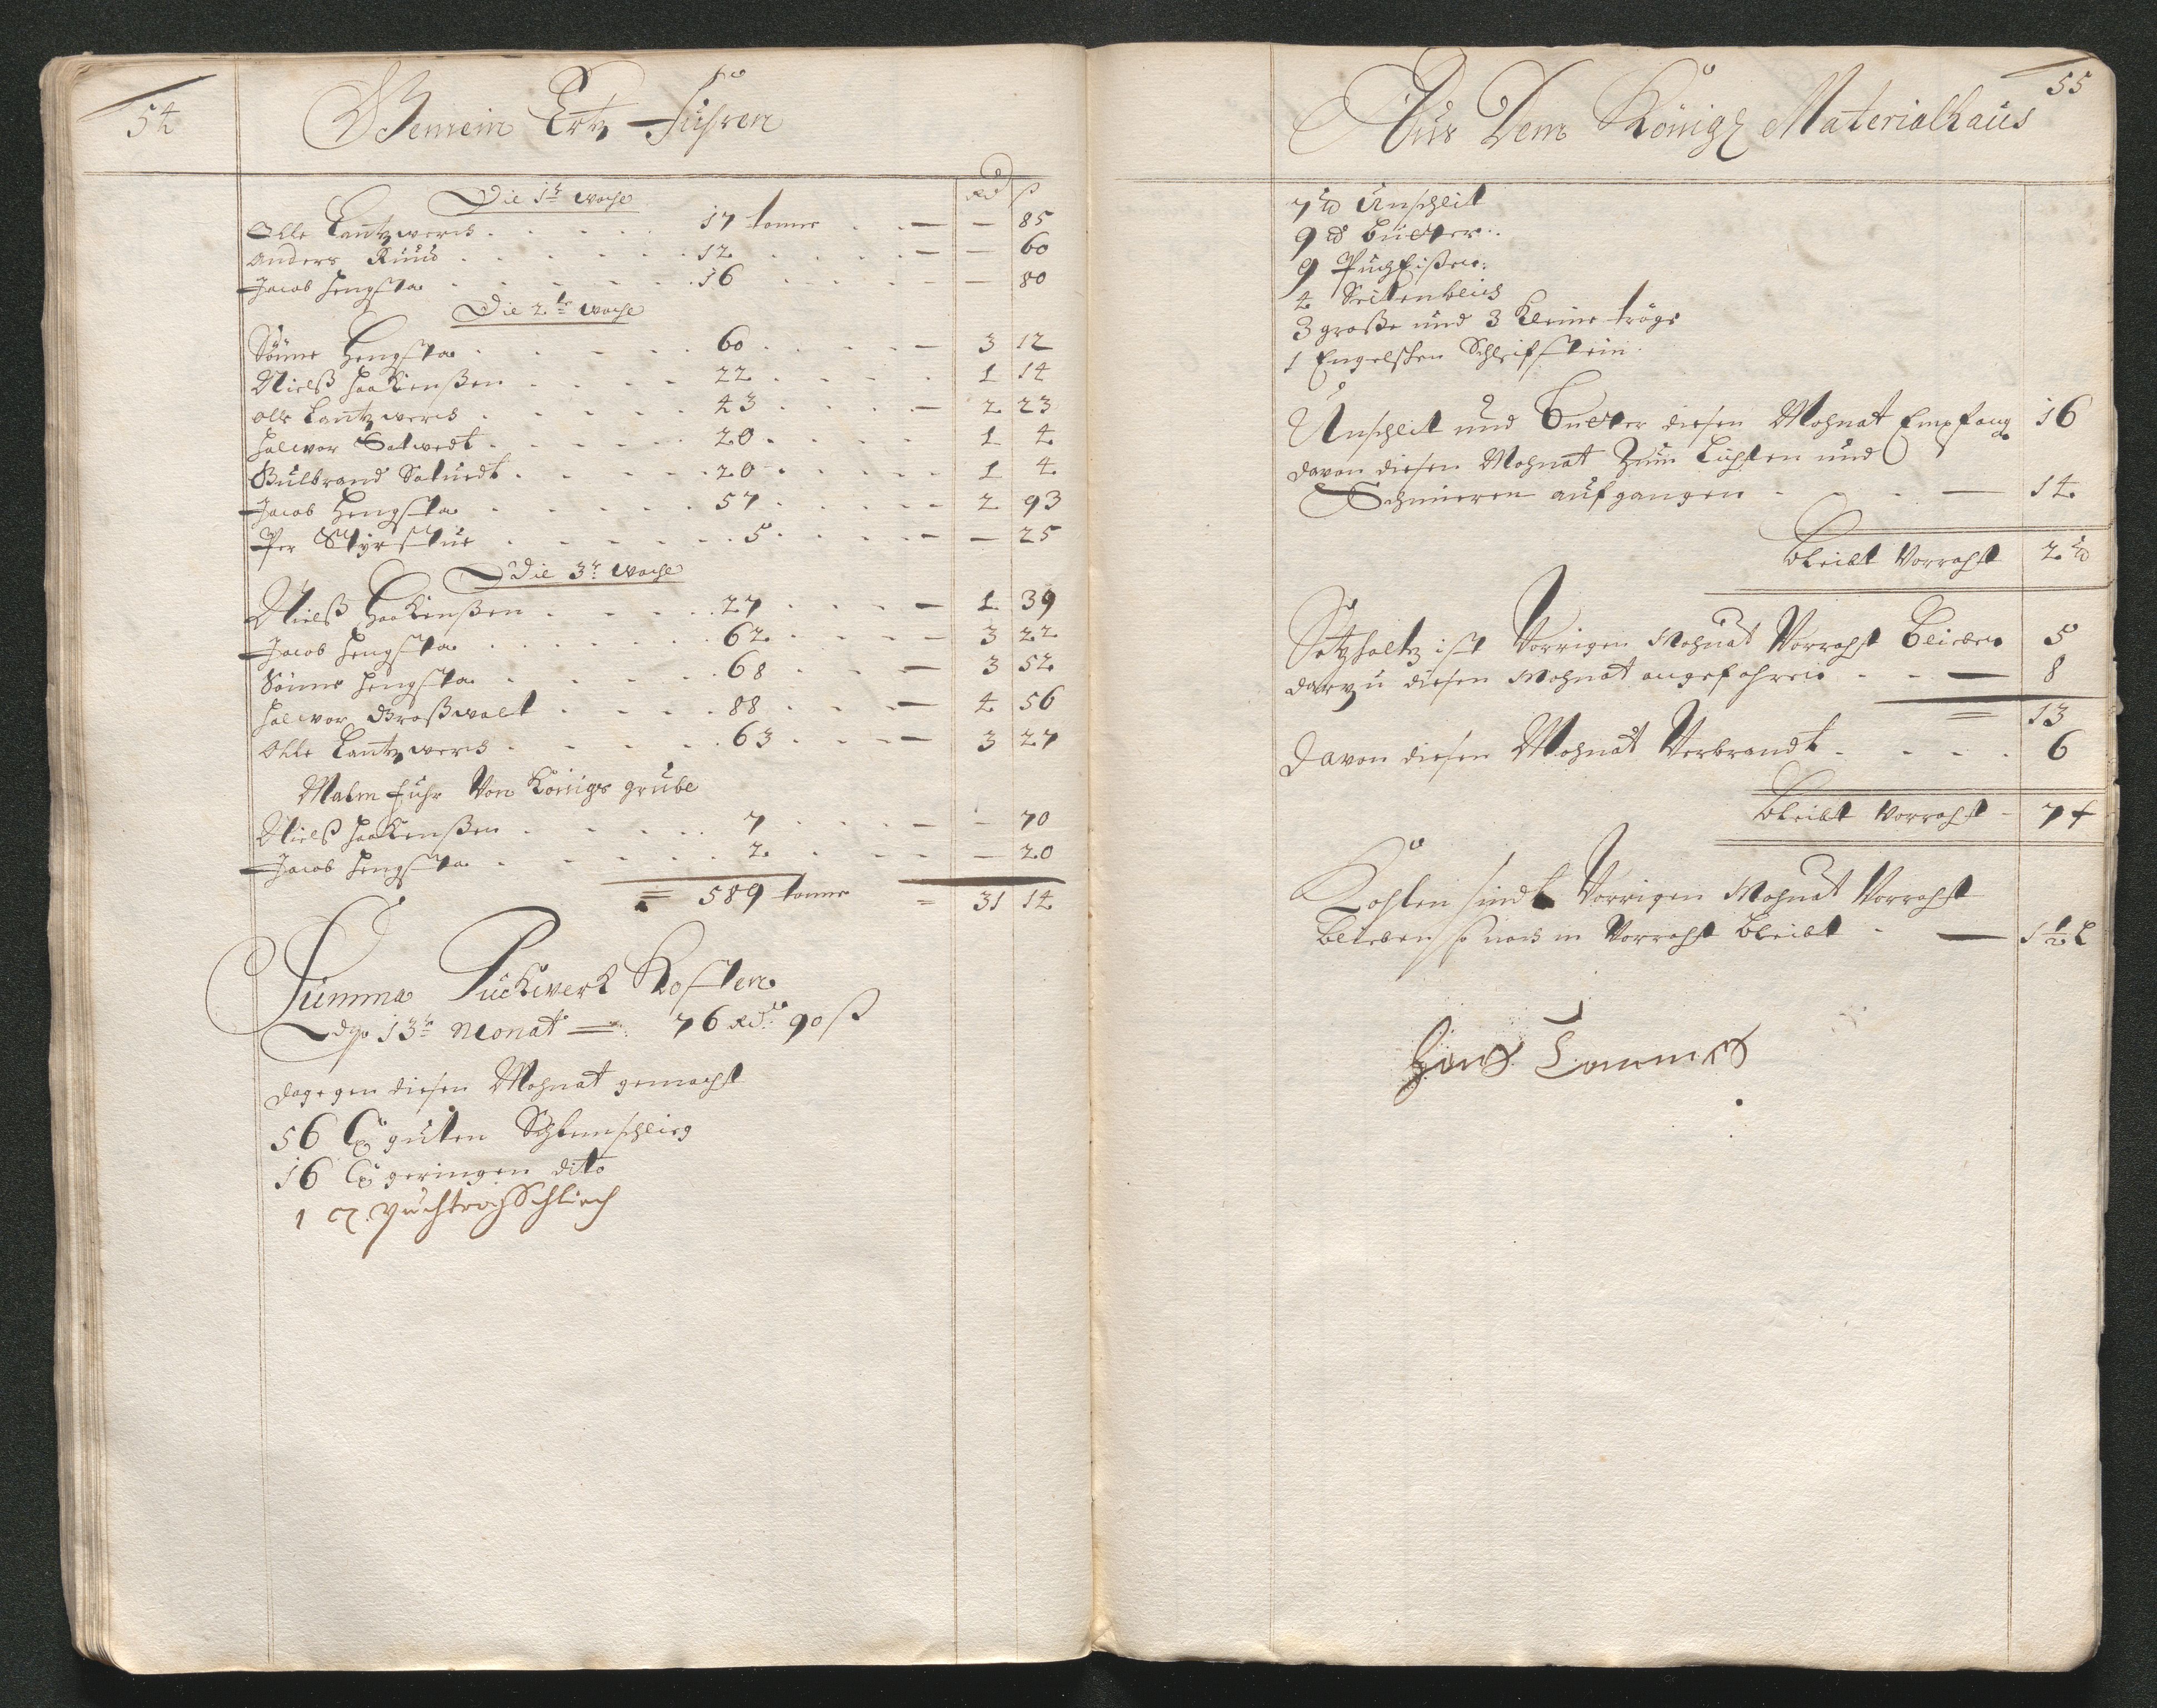 54
Gemein Ertz Fuhren
Rd ß
Die 1te woche
Olle Lantzwerch 17 tonne — 85
Anders Ruud 12 — 60
Jacob Hengsta 16 — 80
Die 2te woche
Sönne Hengsta 60 3 12
Nielß Haakenßen 22 1 14
Olle Lantzwerch 43 2 23
Halwor 20 1 4
Gulbrand 20 1 4
Jacob Hengsta 57 2 93
Per 5 — 25
Die 3te woche
Nielß Haakenßen 27 1 39
Jacob Hengsta 62 3 22
Sönne Hengsta 68 3 52
Halwor Großwalt 88 4 56
Olle Lantzwerch 63 3 27
Malm fuhr Von Königs grube
Nielß Haakenßen 7 — 70
Jacob Hengsta 2 — 20
= 589 tonne = 31 14
Summa Puckwerk Kosten
13te Monat = 76 Rd 90 ß
dagegen diesen Mohnat gemacht
56 C guten Schlemschlieg
16 C geringen dito
1 C Schliech
55
Aus Dem Königl Materialhaus
7 ℔ Unschlit
9 ℔ butter
9 PuchEißen
4
3 große und 3 Kleine tröge
1 Engelschen Schleifstein
Unschlit und Butter diesen Mohnat Empfang 16
davon diesen Mohnat Zum Lichten und
Schmieren aufgangen — 14
bleibt Vorraht 2 ℔
Setzholtz ist Vorrigen Mohnat Vorraht blieben 5
darzu diesen Mohnat angefahren — 8
= 13
Davon diesen Mohnat Verbrandt 6
bleibt Vorraht 7 f
Kohlen sindt Vorrigen Mohnat Vorraht
blieben so noch in Vorraht bleibt — 1½ L
Hans